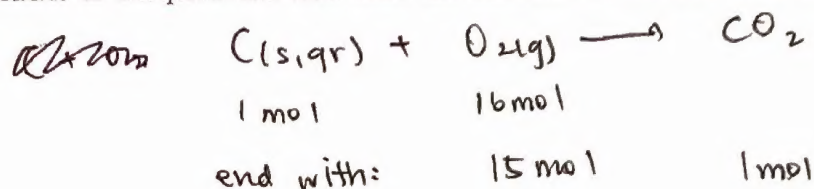 C(s,gr) + O2(g) → CO2
1 mol 16 mol
end with: 15 mol 1 mol